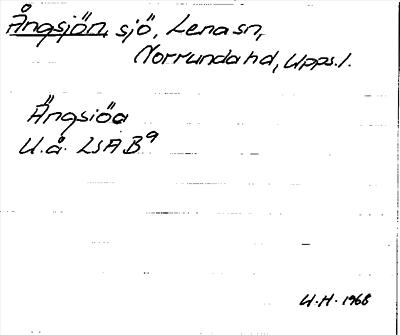 Ångsjön, sjö, Lena sn,
Norrunda hd, Upps.l.
Ängsiöa
U.å. LSA B⁹
U.H. 1968